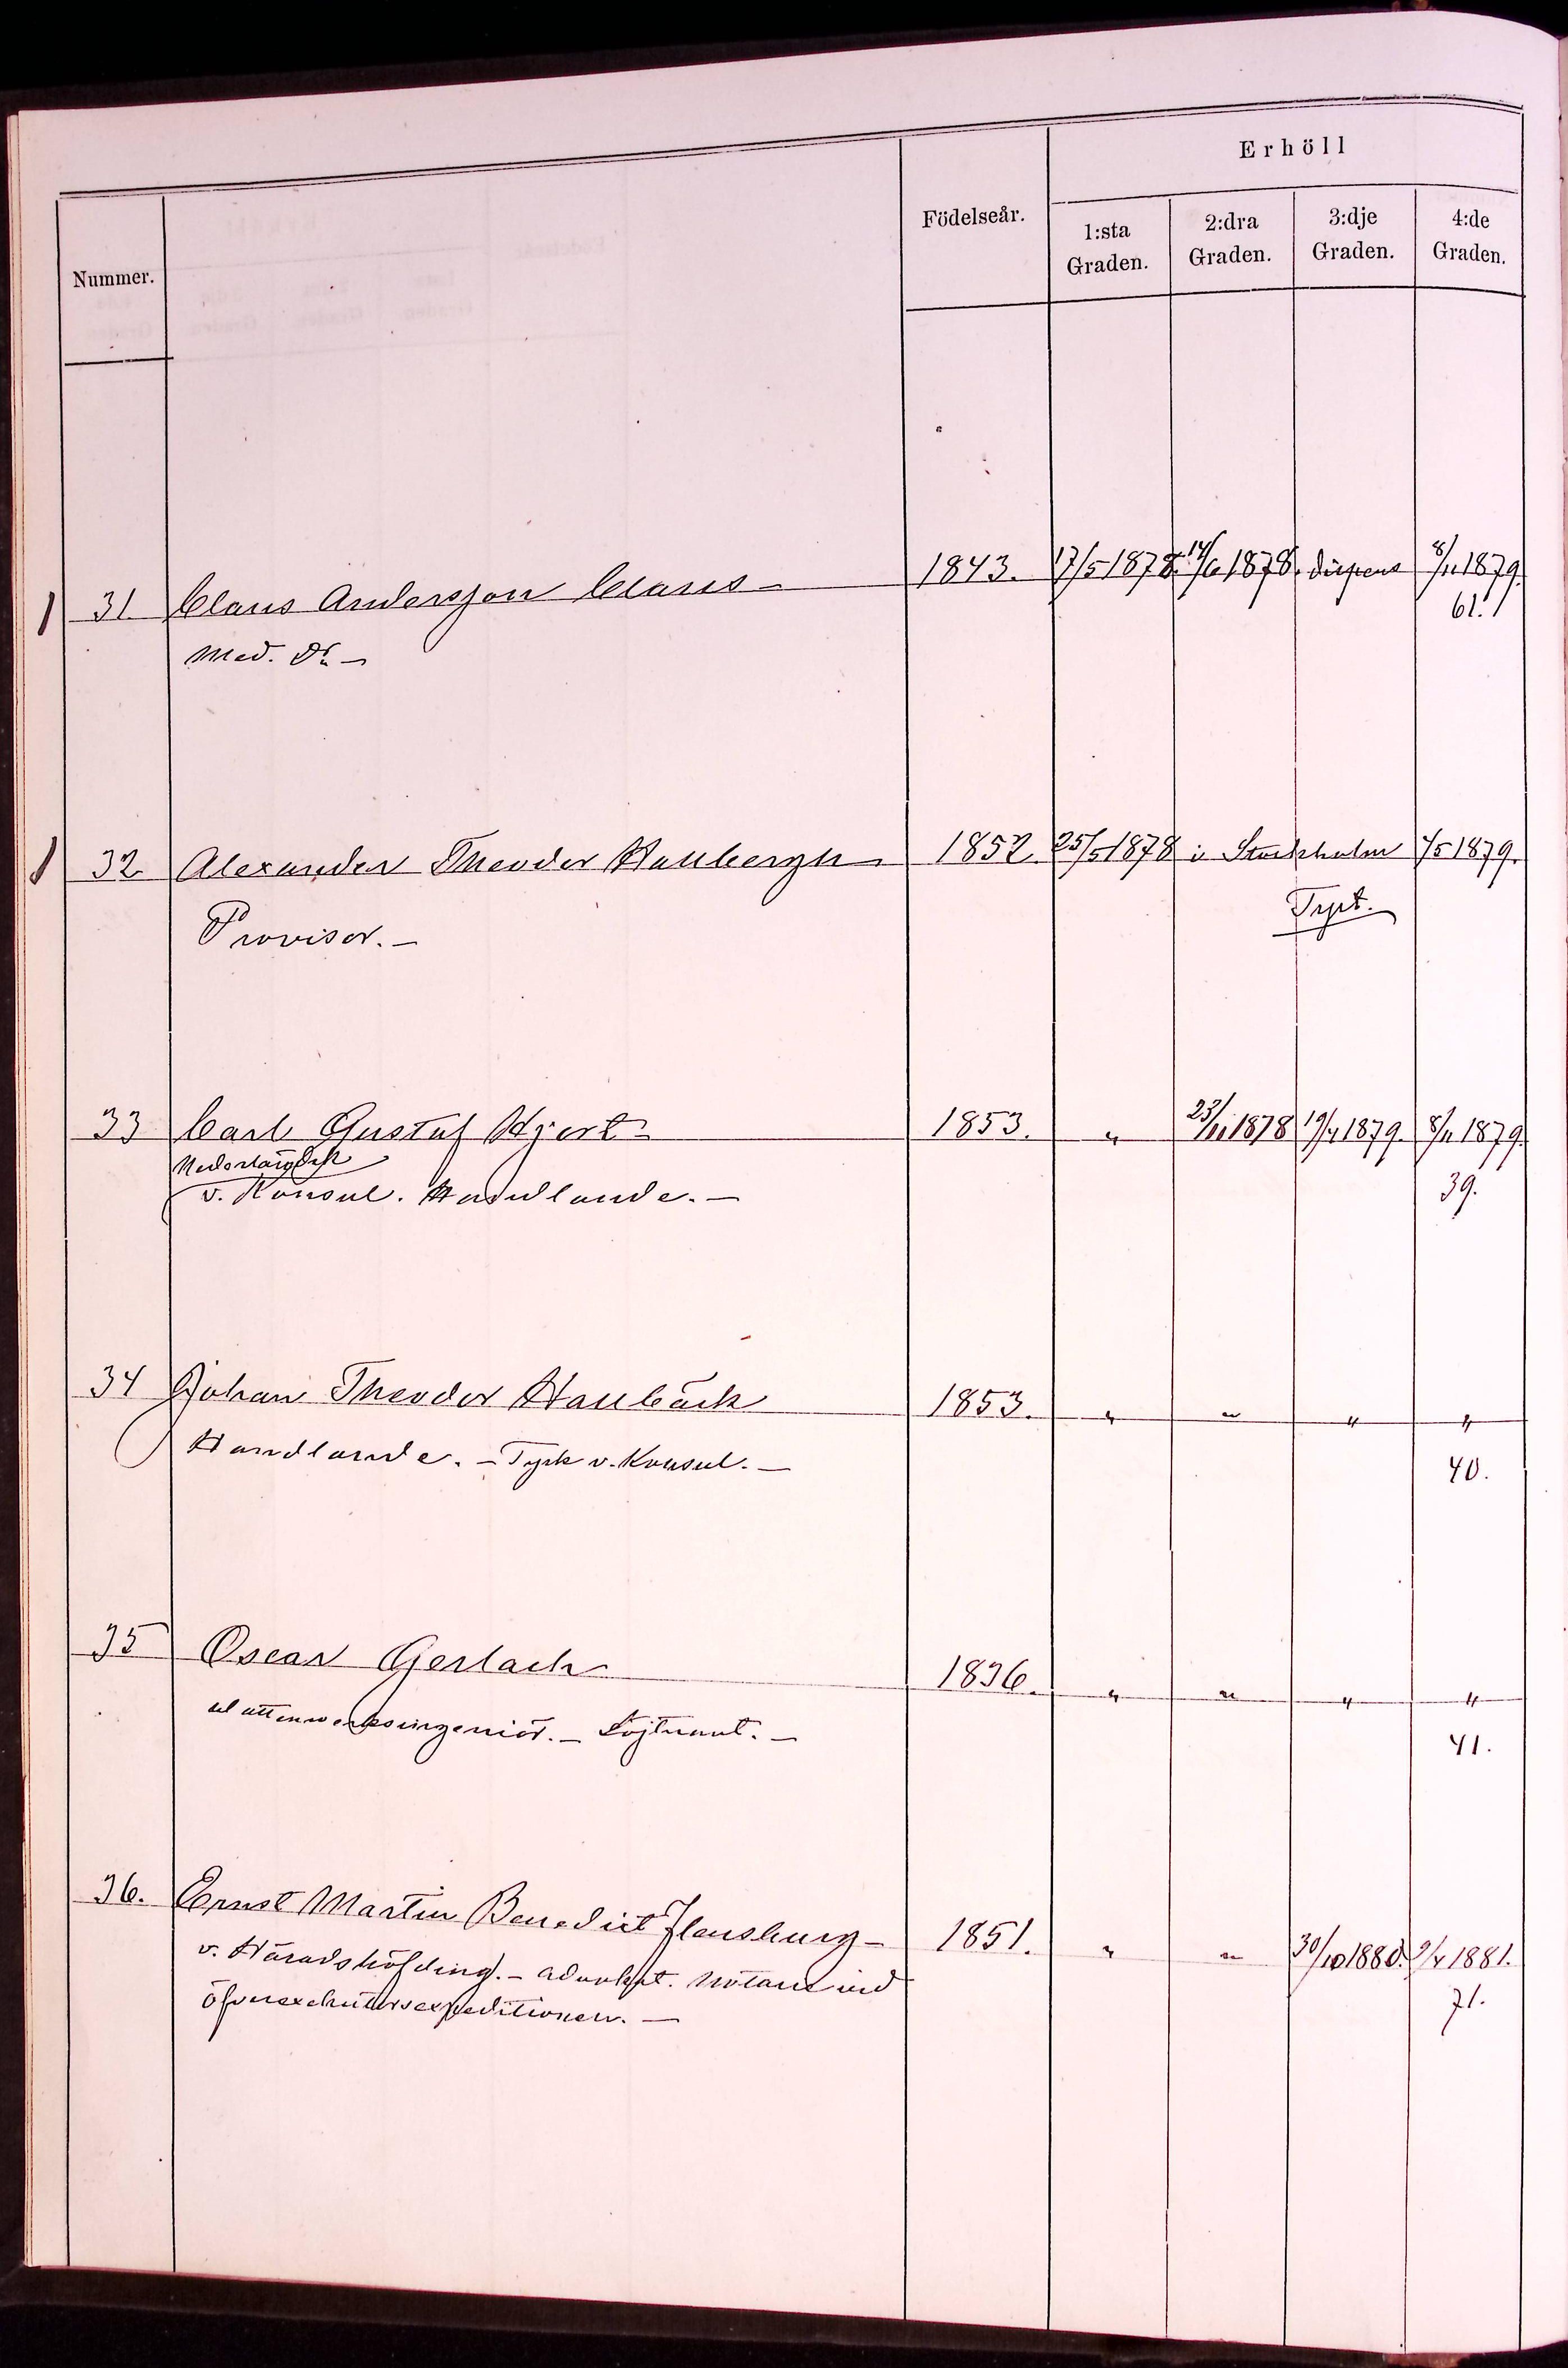 Erhöll
Nummer. Födelseår. 1:sta Graden. 2:dra Graden. 3:dje Graden. 4:de Graden.
31. Claus Andersson Claus 1843. 17/5 1878. 14/6 1878. dispens 8/11 1879.
61.
Med. Dr.
32. Alexander Theodor Hallbergh 1852. 25/5 1878 i Stockholm /5 1879.
Provisor.
33 Carl Gustaf Hjort 1853. " 23/11 1878 19/4 1879. 8/11 1879.
Nederländsk
v. Konsul. Handlande. 39.
34 Johan Theodor Hallbäck 1853. " " " "
Handlande. – Tysk v. Konsul. – 40.
35 Oscar Gerlach 1836. " " " "
Löjtnant. – 41.
36. Ernst Martin Benedict Flensburg – 1851. " " 30/10 1880. 9/4 1881.
v. Häradshöfding. – Advokat. Notarie vid 71.
Öfverexekutorsexpeditionen. –